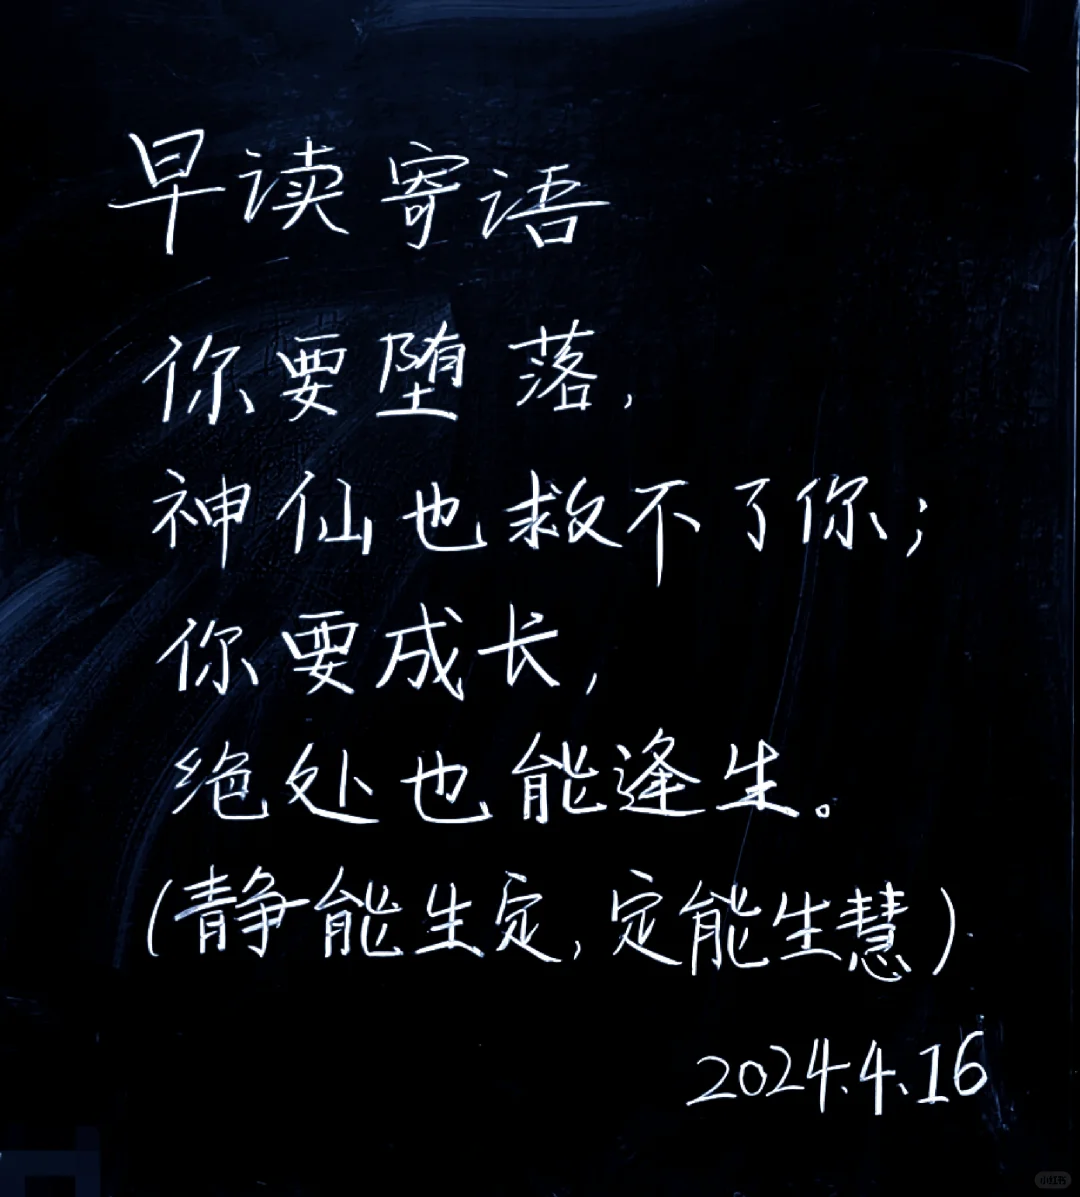 早读寄语
你要堕落,
神仙也救不了你;
你要成长,
绝处也能逢生。
(静能生定,定能生慧)
2024.4.16
小红书